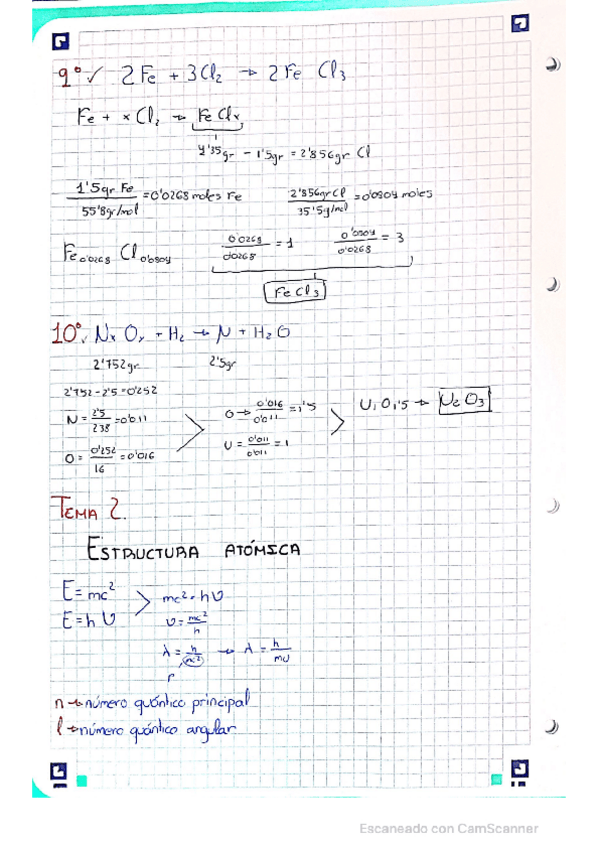 9º✓ 2Fe + 3Cl₂ → 2Fe Cl₃
Fe + xCl₂ → FeClx
4'35gr - 1'5gr = 2'856gr Cl
1'5gr Fe / 55'8gr/mol = 0'0268 moles Fe   2'856gr Cl / 35'5g/mol = 0'0804 moles
Fe0'0268 Cl0'0804   0'0268 / 0'0268 = 1   0'0804 / 0'0268 = 3
FeCl₃
10º. + H₂ → + H₂O
2'752gr   2'5gr
2'752-2'5=0'252
= 2'5 / 238 = 0'011   O → 0'016 / 0'011 = 1'5   U₁O₁'5 → U₂O₃
O = 0'252 / 16 = 0'016   U = 0'011 / 0'011 = 1
TEMA 2.
ESTRUCTURA ATÓMICA
E = mc²   mc² = hυ
E = h υ   υ = mc² / h
λ = h / mc² → λ = h / mυ
r
n → número quántico principal
l → número quántico angular
Escaneado con CamScanner